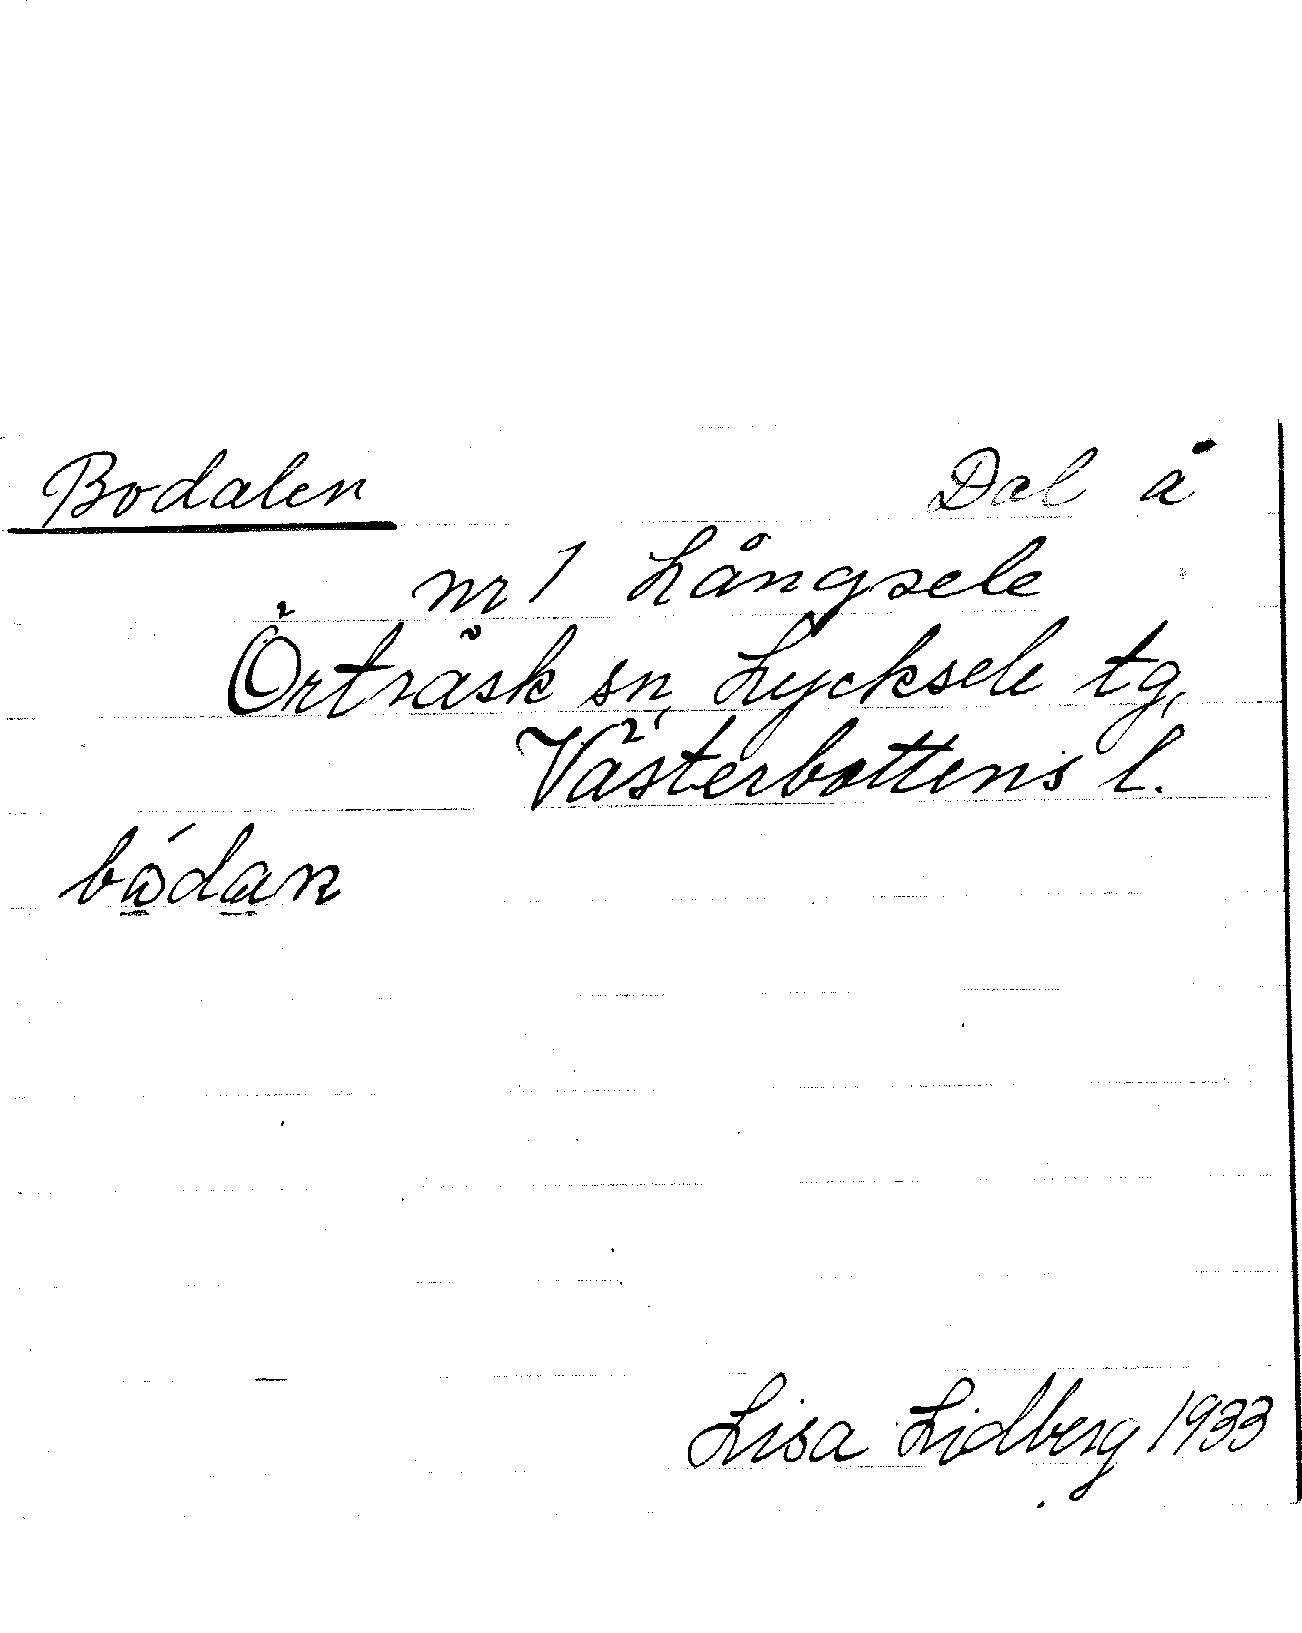 Bodalen Dal å
nr 1 Långsele
Örträsk sn, Lycksele tg,
Västerbottens l.
Lisa Lidberg 1933